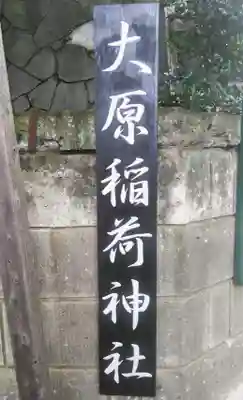 大原稲荷神社